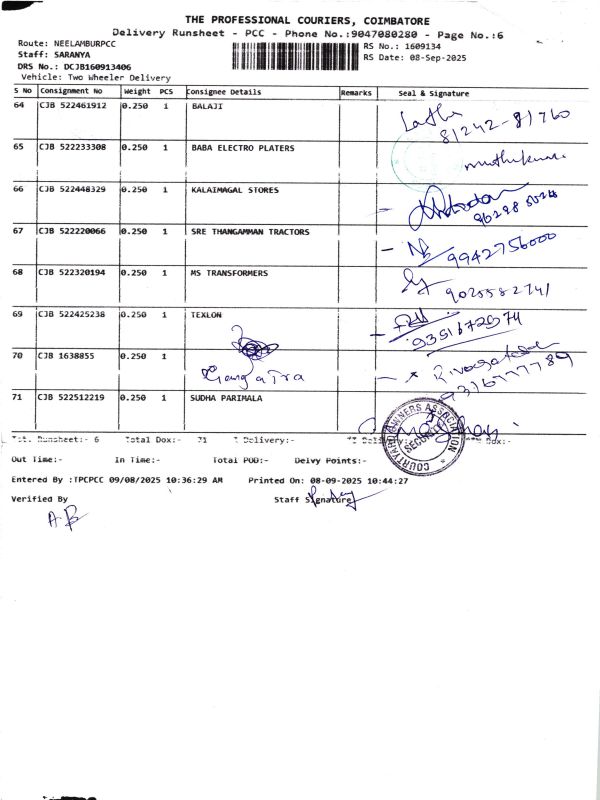 THE PROFESSIONAL COURIERS, COIMBATORE
Delivery Runsheet - PCC - Phone No.:9047080280 - Page No.:6
Route: NEELAMBURPCC
Staff: SARANYA
DRS No.: DCJB160913406
Vehicle: Two Wheeler Delivery
RS No.: 1609134
RS Date: 08-Sep-2025
S No Consignment No Weight PCS Consignee Details Remarks Seal & Signature
64 CJB 522461912 0.250 1 BALAJI
Latha
81242-81760
65 CJB 522233308 0.250 1 BABA ELECTRO PLATERS
muthukumar
66 CJB 522448329 0.250 1 KALAIMAGAL STORES
67 CJB 522220066 0.250 1 SRE THANGAMMAN TRACTORS
9942756000
68 CJB 522320194 0.250 1 MS TRANSFORMERS
9025582741
69 CJB 522425238 0.250 1 TEXLON
70 CJB 1638055 0.250 1
71 CJB 522512219 0.250 1 SUDHA PARIMALA
COURTYARD OWNERS ASSOCIATION
SECURITY
Tot. Runsheet:- 6 Total Dox:- 71
Out Time:- In Time:- Total POD:- Delvy Points:-
Entered By :TPCPCC 09/08/2025 10:36:29 AM Printed On: 08-09-2025 10:44:27
Verified By Staff Signature